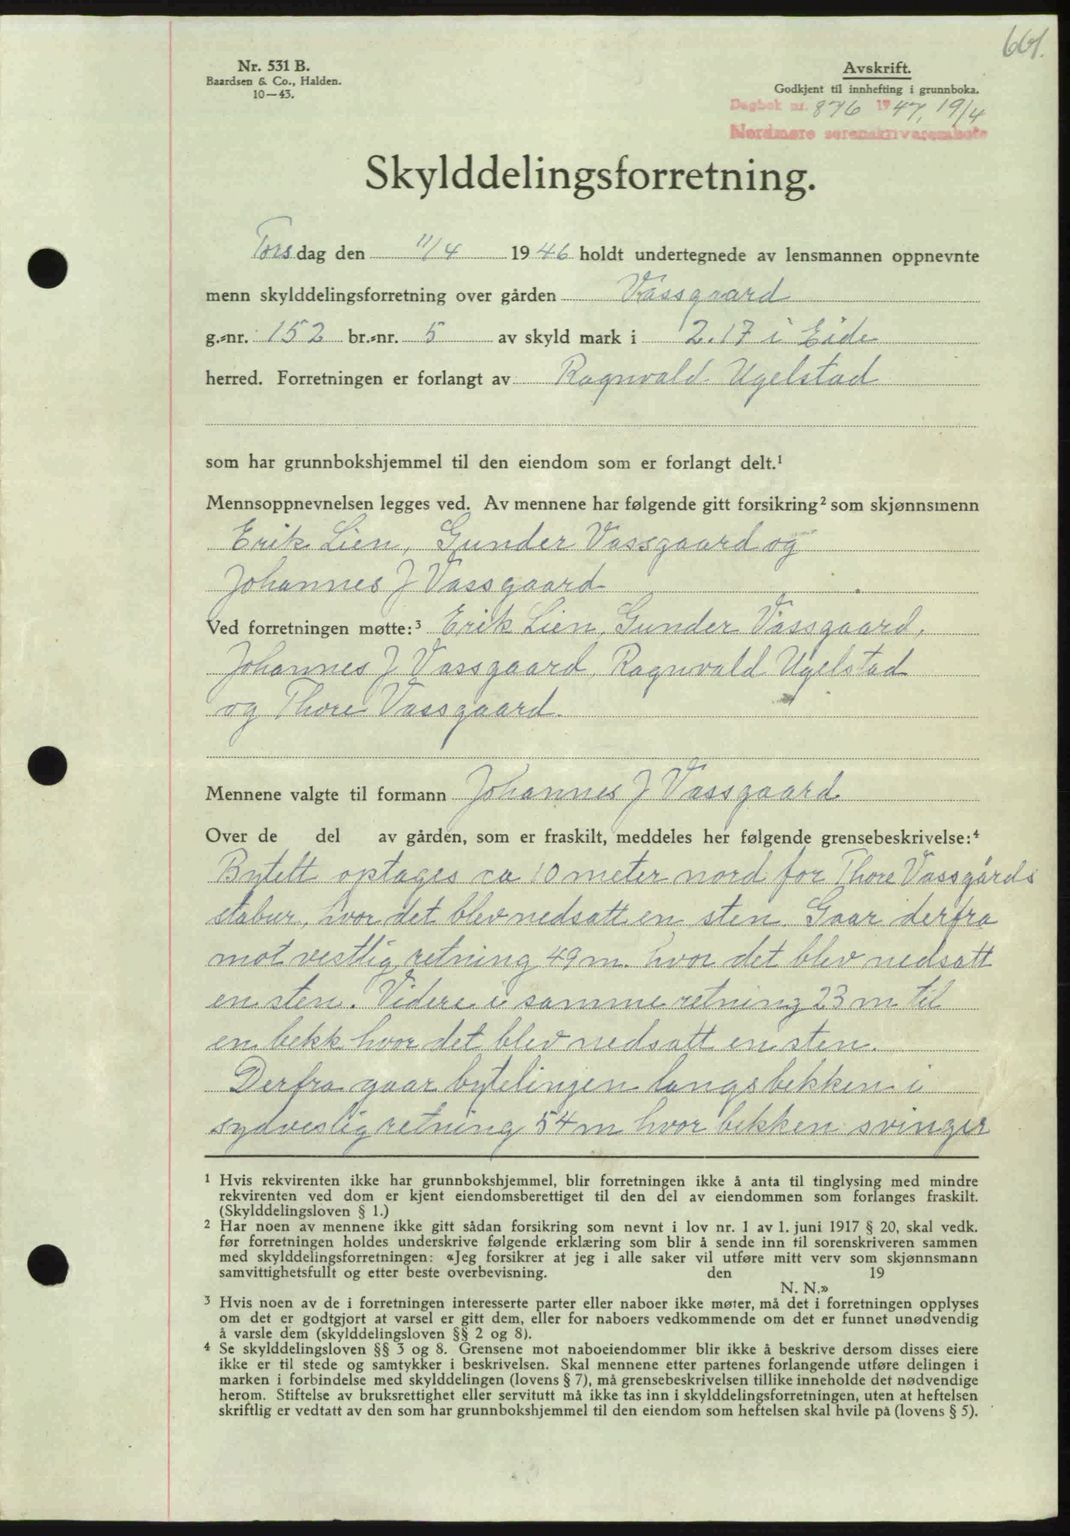 661.
Nr. 531 B.
Baardsen & Co., Halden.
10—43.
Avskrift.
Godkjent til innhefting i grunnboka.
Dagbok nr. 876 1947, 19/4
Nordmøre sorenskriverembete
Skylddelingsforretning.
Torsdag den 11/4 1946 holdt undertegnede av lensmannen oppnevnte
menn skylddelingsforretning over gården Vassgaard
g.-nr. 152 br.-nr. 5 av skyld mark i 2.17 i Eide
herred. Forretningen er forlangt av Ragnvald Ugelstad
som har grunnbokshjemmel til den eiendom som er forlangt delt.¹
Mennsoppnevnelsen legges ved. Av mennene har følgende gitt forsikring² som skjønnsmenn
Erik Lien, Gunder Vassgaard og
Johannes J Vassgaard
Ved forretningen møtte:³ Erik Lien, Gunder Vassgaard,
Johannes J Vassgaard, Ragnvald Ugelstad
og Thore Vassgaard.
Mennene valgte til formann Johannes J Vassgaard
Over de del av gården, som er fraskilt, meddeles her følgende grensebeskrivelse:⁴
Bytelt optages ca 10 meter nord for Thore Vassgårds
stabur, hvor det blev nedsatt en sten. Gaar derfra
mot vestlig retning 49 m. hvor det blev nedsatt
en sten. Videre i samme retning 23 m til
en bekk hvor det blev nedsatt en sten.
Derfra gaar bytelinjen langs bekken i
sydvestlig retning 54 m hvor bekken svinger
¹ Hvis rekvirenten ikke har grunnbokshjemmel, blir forretningen ikke å anta til tinglysing med mindre
rekvirenten ved dom er kjent eiendomsberettiget til den del av eiendommen som forlanges fraskilt.
(Skylddelingsloven § 1.)
² Har noen av mennene ikke gitt sådan forsikring som nevnt i lov nr. 1 av 1. juni 1917 § 20, skal vedk.
før forretningen holdes underskrive følgende erklæring som blir å sende inn til sorenskriveren sammen
med skylddelingsforretningen: «Jeg forsikrer at jeg i alle saker vil utføre mitt verv som skjønnsmann
samvittighetsfullt og etter beste overbevisning. den 19
N. N.»
³ Hvis noen av de i forretningen interesserte parter eller naboer ikke møter, må det i forretningen opplyses
om det er godtgjort at varsel er gitt dem, eller for naboers vedkommende om det er funnet unødvendig
å varsle dem (skylddelingsloven §§ 2 og 8).
⁴ Se skylddelingsloven §§ 3 og 8. Grensene mot naboeiendommer blir ikke å beskrive dersom disses eiere
ikke er til stede og samtykker i beskrivelsen. Skal mennene etter partenes forlangende utføre delingen i
marken i forbindelse med skylddelingen (lovens § 7), må grensebeskrivelsen tillike inneholde det nødvendige
herom. Stiftelse av bruksrettighet eller servitutt må ikke tas inn i skylddelingsforretningen, uten at heftelsen
skriftlig er vedtatt av den som har grunnbokshjemmel til den eiendom som heftelsen skal hvile på (lovens § 5).